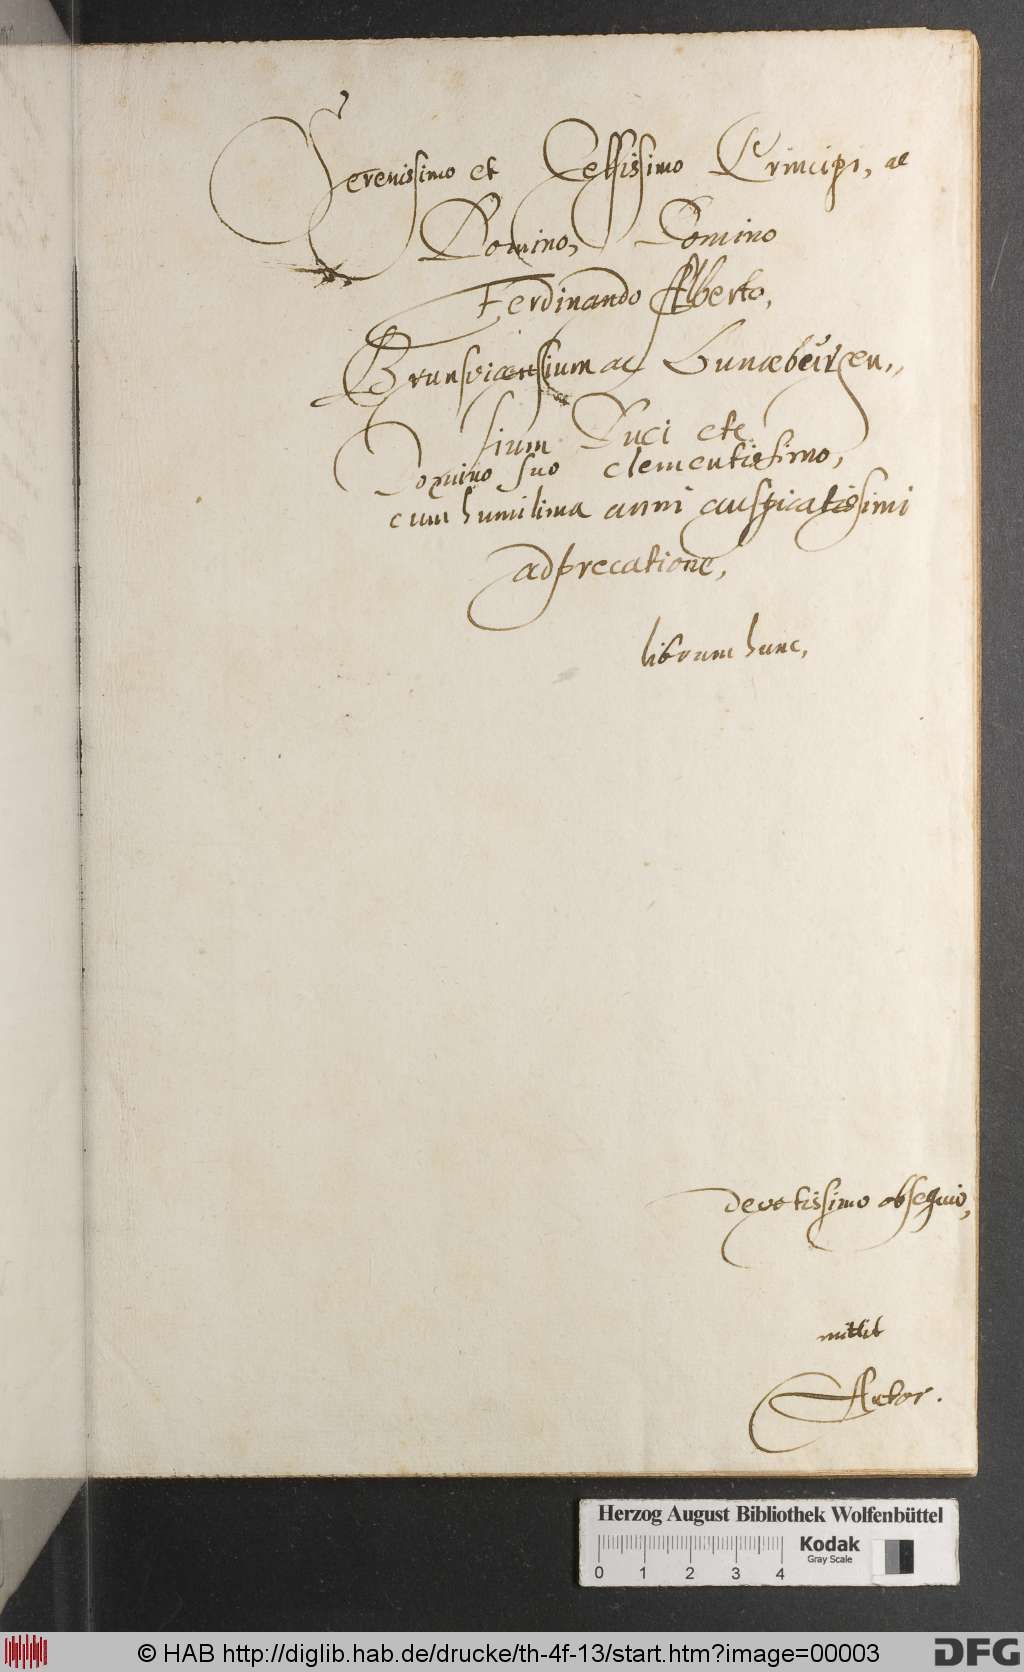 Serenissimo et Celsissimo Principi, ac
Domino, Domino
Ferdinando Alberto,
Brunsvicensium ac Lunæburgen,,
sium Duci etc
Domino suo clementissimo,
cum humilima anni auspicatissimi
adprecatione,
librum hunc,
devotissimo obsequio,
mittit
Autor.
Herzog August Bibliothek Wolfenbüttel
Kodak
Gray Scale
0 1 2 3 4
© HAB http://diglib.hab.de/drucke/th-4f-13/start.htm?image=00003
DFG